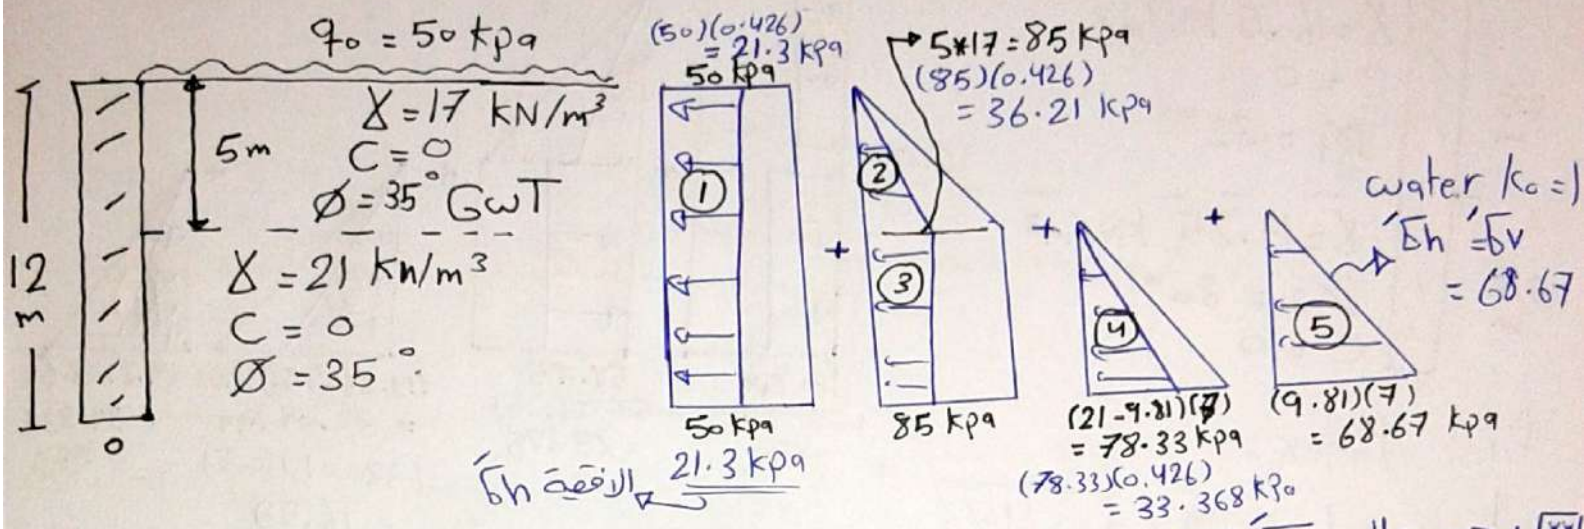 q₀ = 50 kpa
12
m
5m
γ = 17 kN/m³
C = 0
Ø = 35° GWT
γ = 21 kn/m³
C = 0
Ø = 35°
0
(50)(0.426)
= 21.3 kpa
50 kpa
①
50 kpa
21.3 kpa
σ́h الافقية
+
5*17 = 85 kpa
(85)(0.426)
= 36.21 kpa
②
③
85 kpa
+
④
(21-9.81)(7)
= 78.33 kpa
(78.33)(0.426)
= 33.368 kpa
+
water k₀ = 1
σ́h = σ́v
= 68.67
⑤
(9.81)(7)
= 68.67 kpa